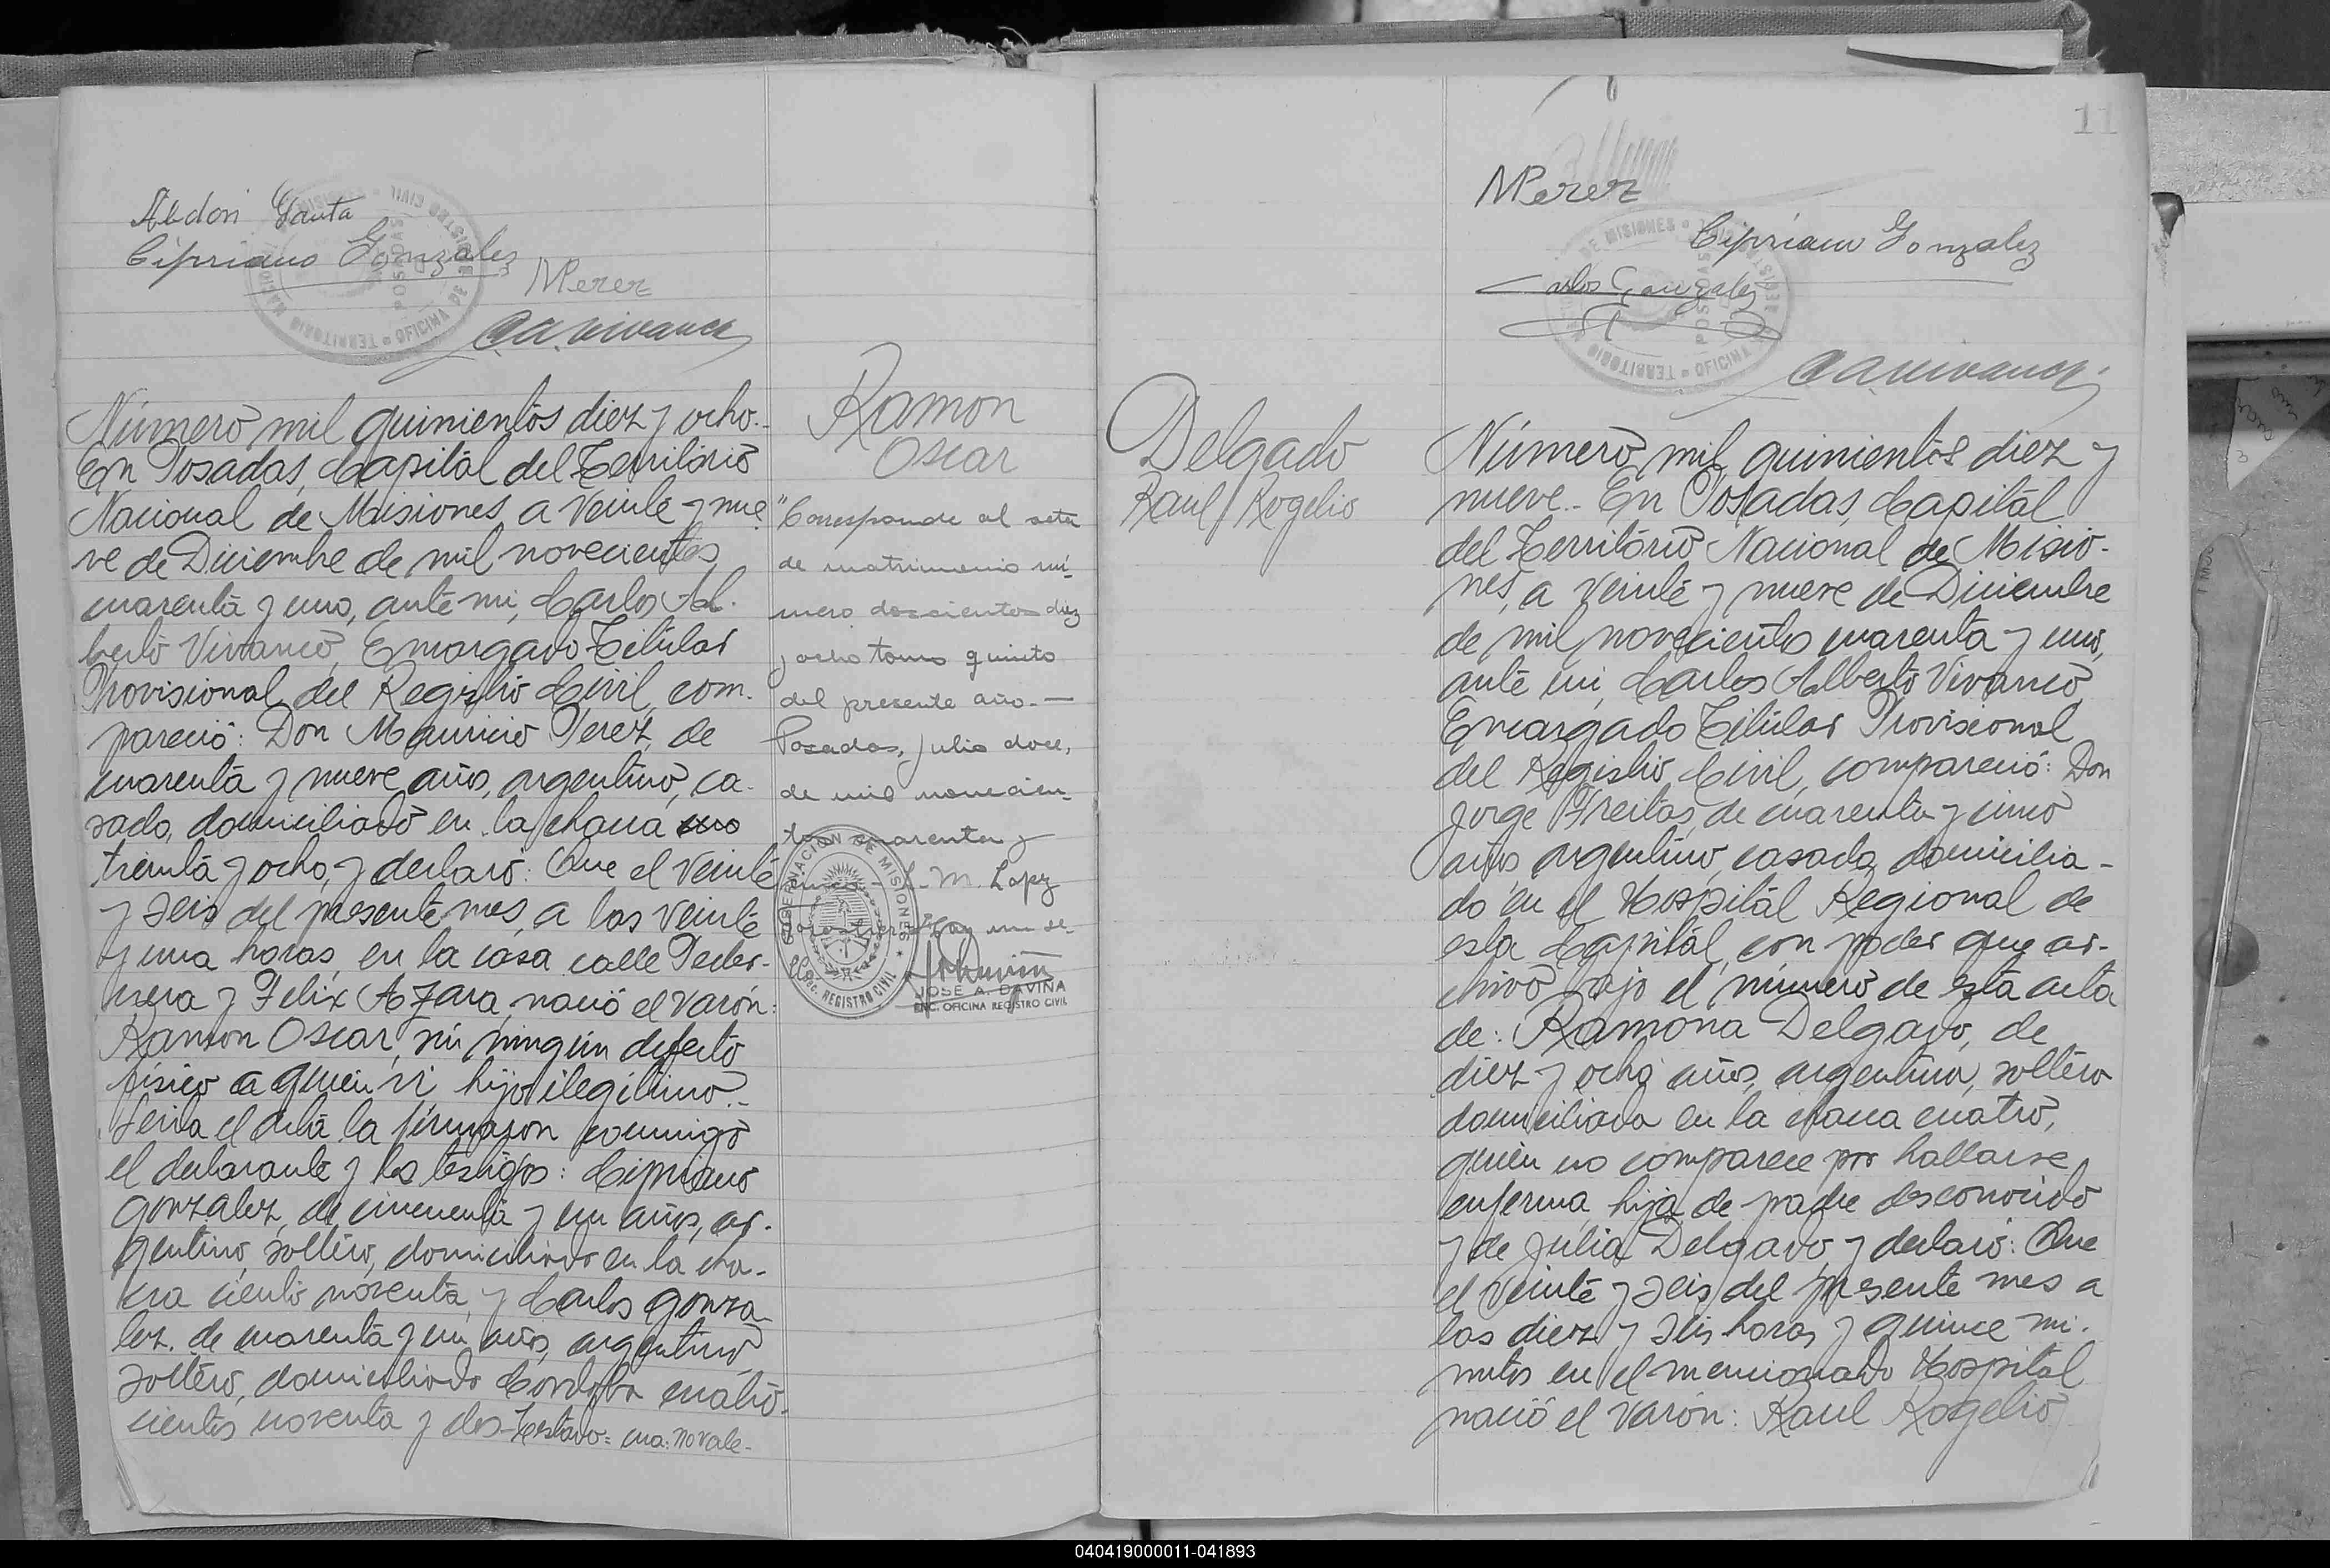 Abdon Gauta
Cipriano Gonzalez
MPerez
CAVivanco
Número mil quinientos diez y ocho.-
En Posadas, Capital del Territorio
Nacional de Misiones, a veinte y nue
ve de Diciembre de mil novecientos
cuarenta y uno, ante mi, Carlos Al-
berto Vivanco, Encargado Titular
Provisional del Registro Civil, com-
pareció: Don Mauricio Perez, de
cuarenta y nueve años, argentino, ca-
sado, domiciliado en la chacra
treinta y ocho, y declaró: Que el veinte
y seis del presente mes, a las veinte
y una horas, en la casa calle Peder-
nera y Felix Azara, nació el varón:
Ramon Oscar, sin ningún defecto
físico a quien vi, hijo ilegítimo.-
Leida el acta la firmaron conmigo
el declarante y los testigos: Cipriano
Gonzalez, de cincuenta y un años, ar-
gentino, soltero, domiciliado en la cha-
cra ciento noventa, y Carlos Gonza
lez, de cuarenta y un años, argentino
soltero, domiciliado Cordoba cuatro-
cientos noventa y dos- Testado= una: No vale-
Ramon
Oscar
"Corresponde al acta
de matrimonio nú-
mero doscientos diez
y ocho tomo quinto
del presente año.-
Posadas, julio doce,
de mil novecien-
tos cuarenta y
cinco - J. M. Lopez
Hay un se-
GOBERNACION DE MISIONES
REGISTRO CIVIL
JOSE A. DAVIÑA
ENC. OFICINA REGISTRO CIVIL
11
MPerez
Cipriano Gonzalez
Carlos Gonzalez
CAVivanco
DE MISIONES
POSADAS
TERRITORIO
OFICINA
Delgado
Raul Rogelio
Número mil quinientos diez y
nueve.- En Posadas, Capital
del Territorio Nacional de Misio-
nes, a veinte y nueve de Diciembre
de mil novecientos cuarenta y uno,
ante mi, Carlos Alberto Vivanco
Encargado Titular Provisional
del Registro Civil, compareció: Don
Jorge Freitas, de cuarenta y cinco
años argentino, casado, domicilia-
do en el Hospital Regional de
esta Capital, con poder que ar-
chivo bajo el número de esta acta
de: Ramona Delgado, de
diez y ocho años, argentina, soltera
domiciliada en la chacra cuatro,
quien no comparece por hallarse
enferma, hija de padre desconocido
y de Julia Delgado, y declaró: Que
el veinte y seis del presente mes a
las diez y seis horas y quince mi-
nutos en el mencionado Hospital
nació el varón: Raul Rogelio
040419000011-041893